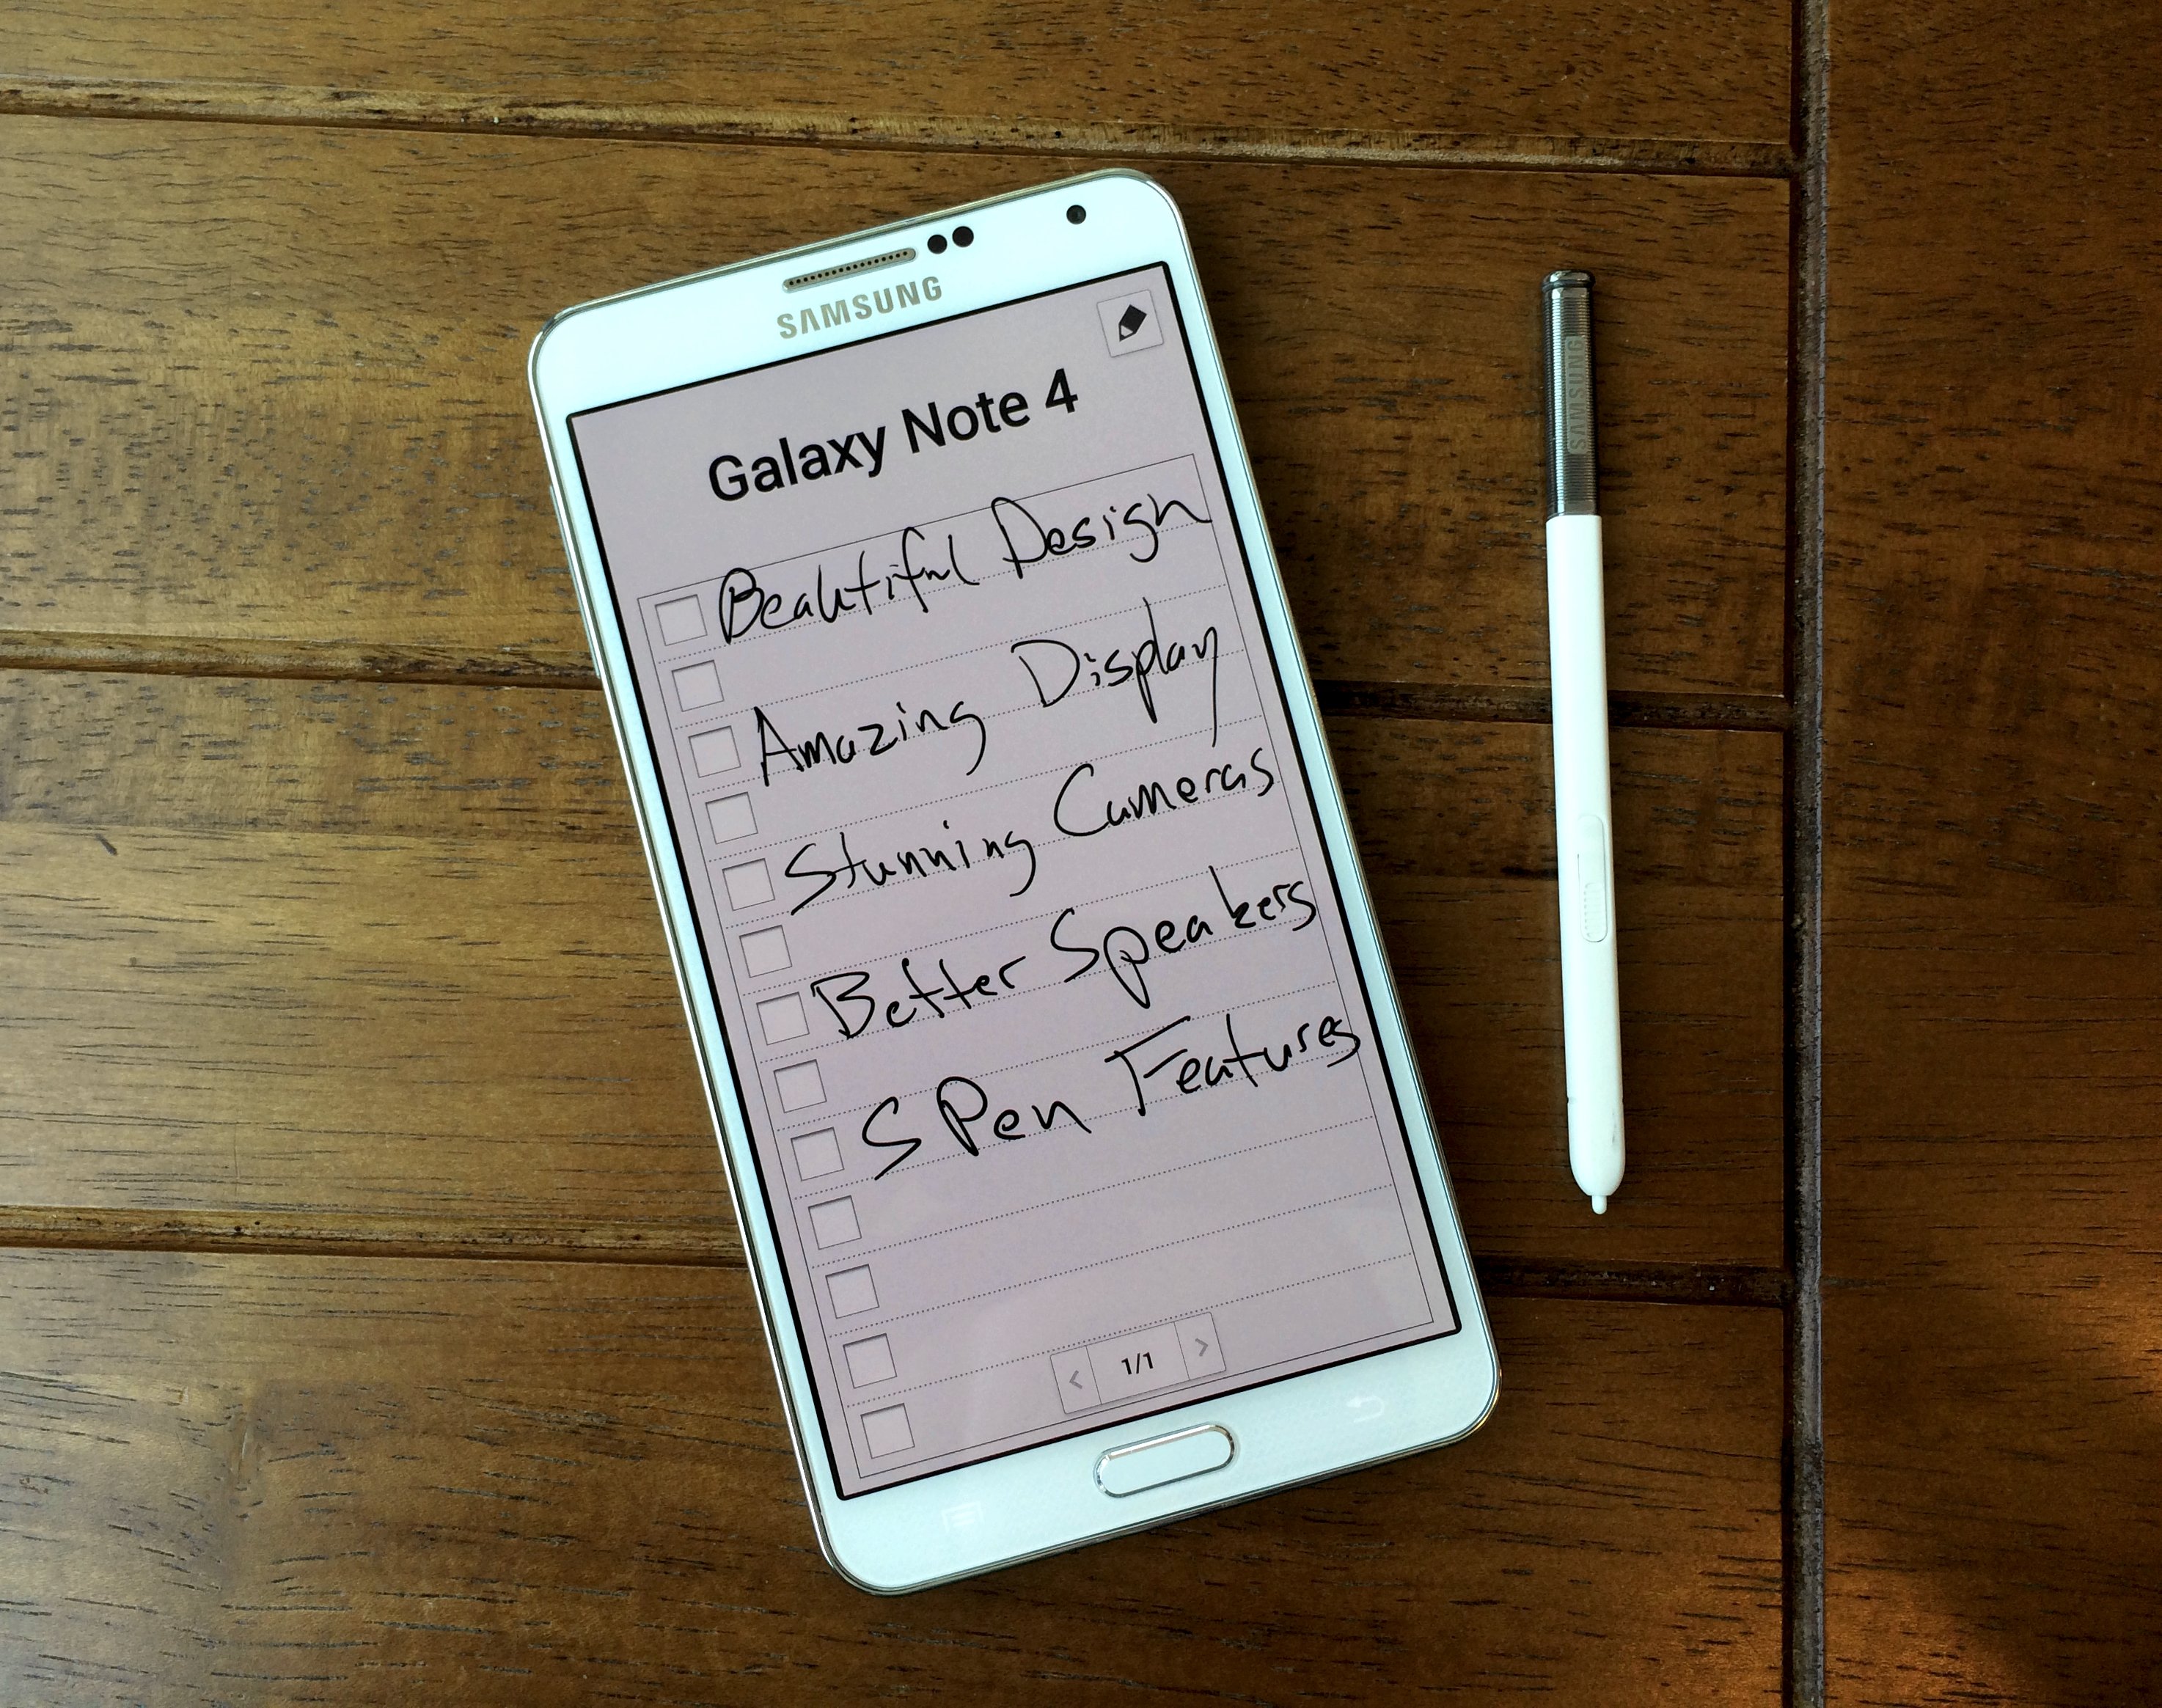 SAMSUNG
Galaxy Note 4
Beautiful Design
Amazing Display
Stunning Cameras
Better Speakers
S Pen Features
1/1
SAMSUNG